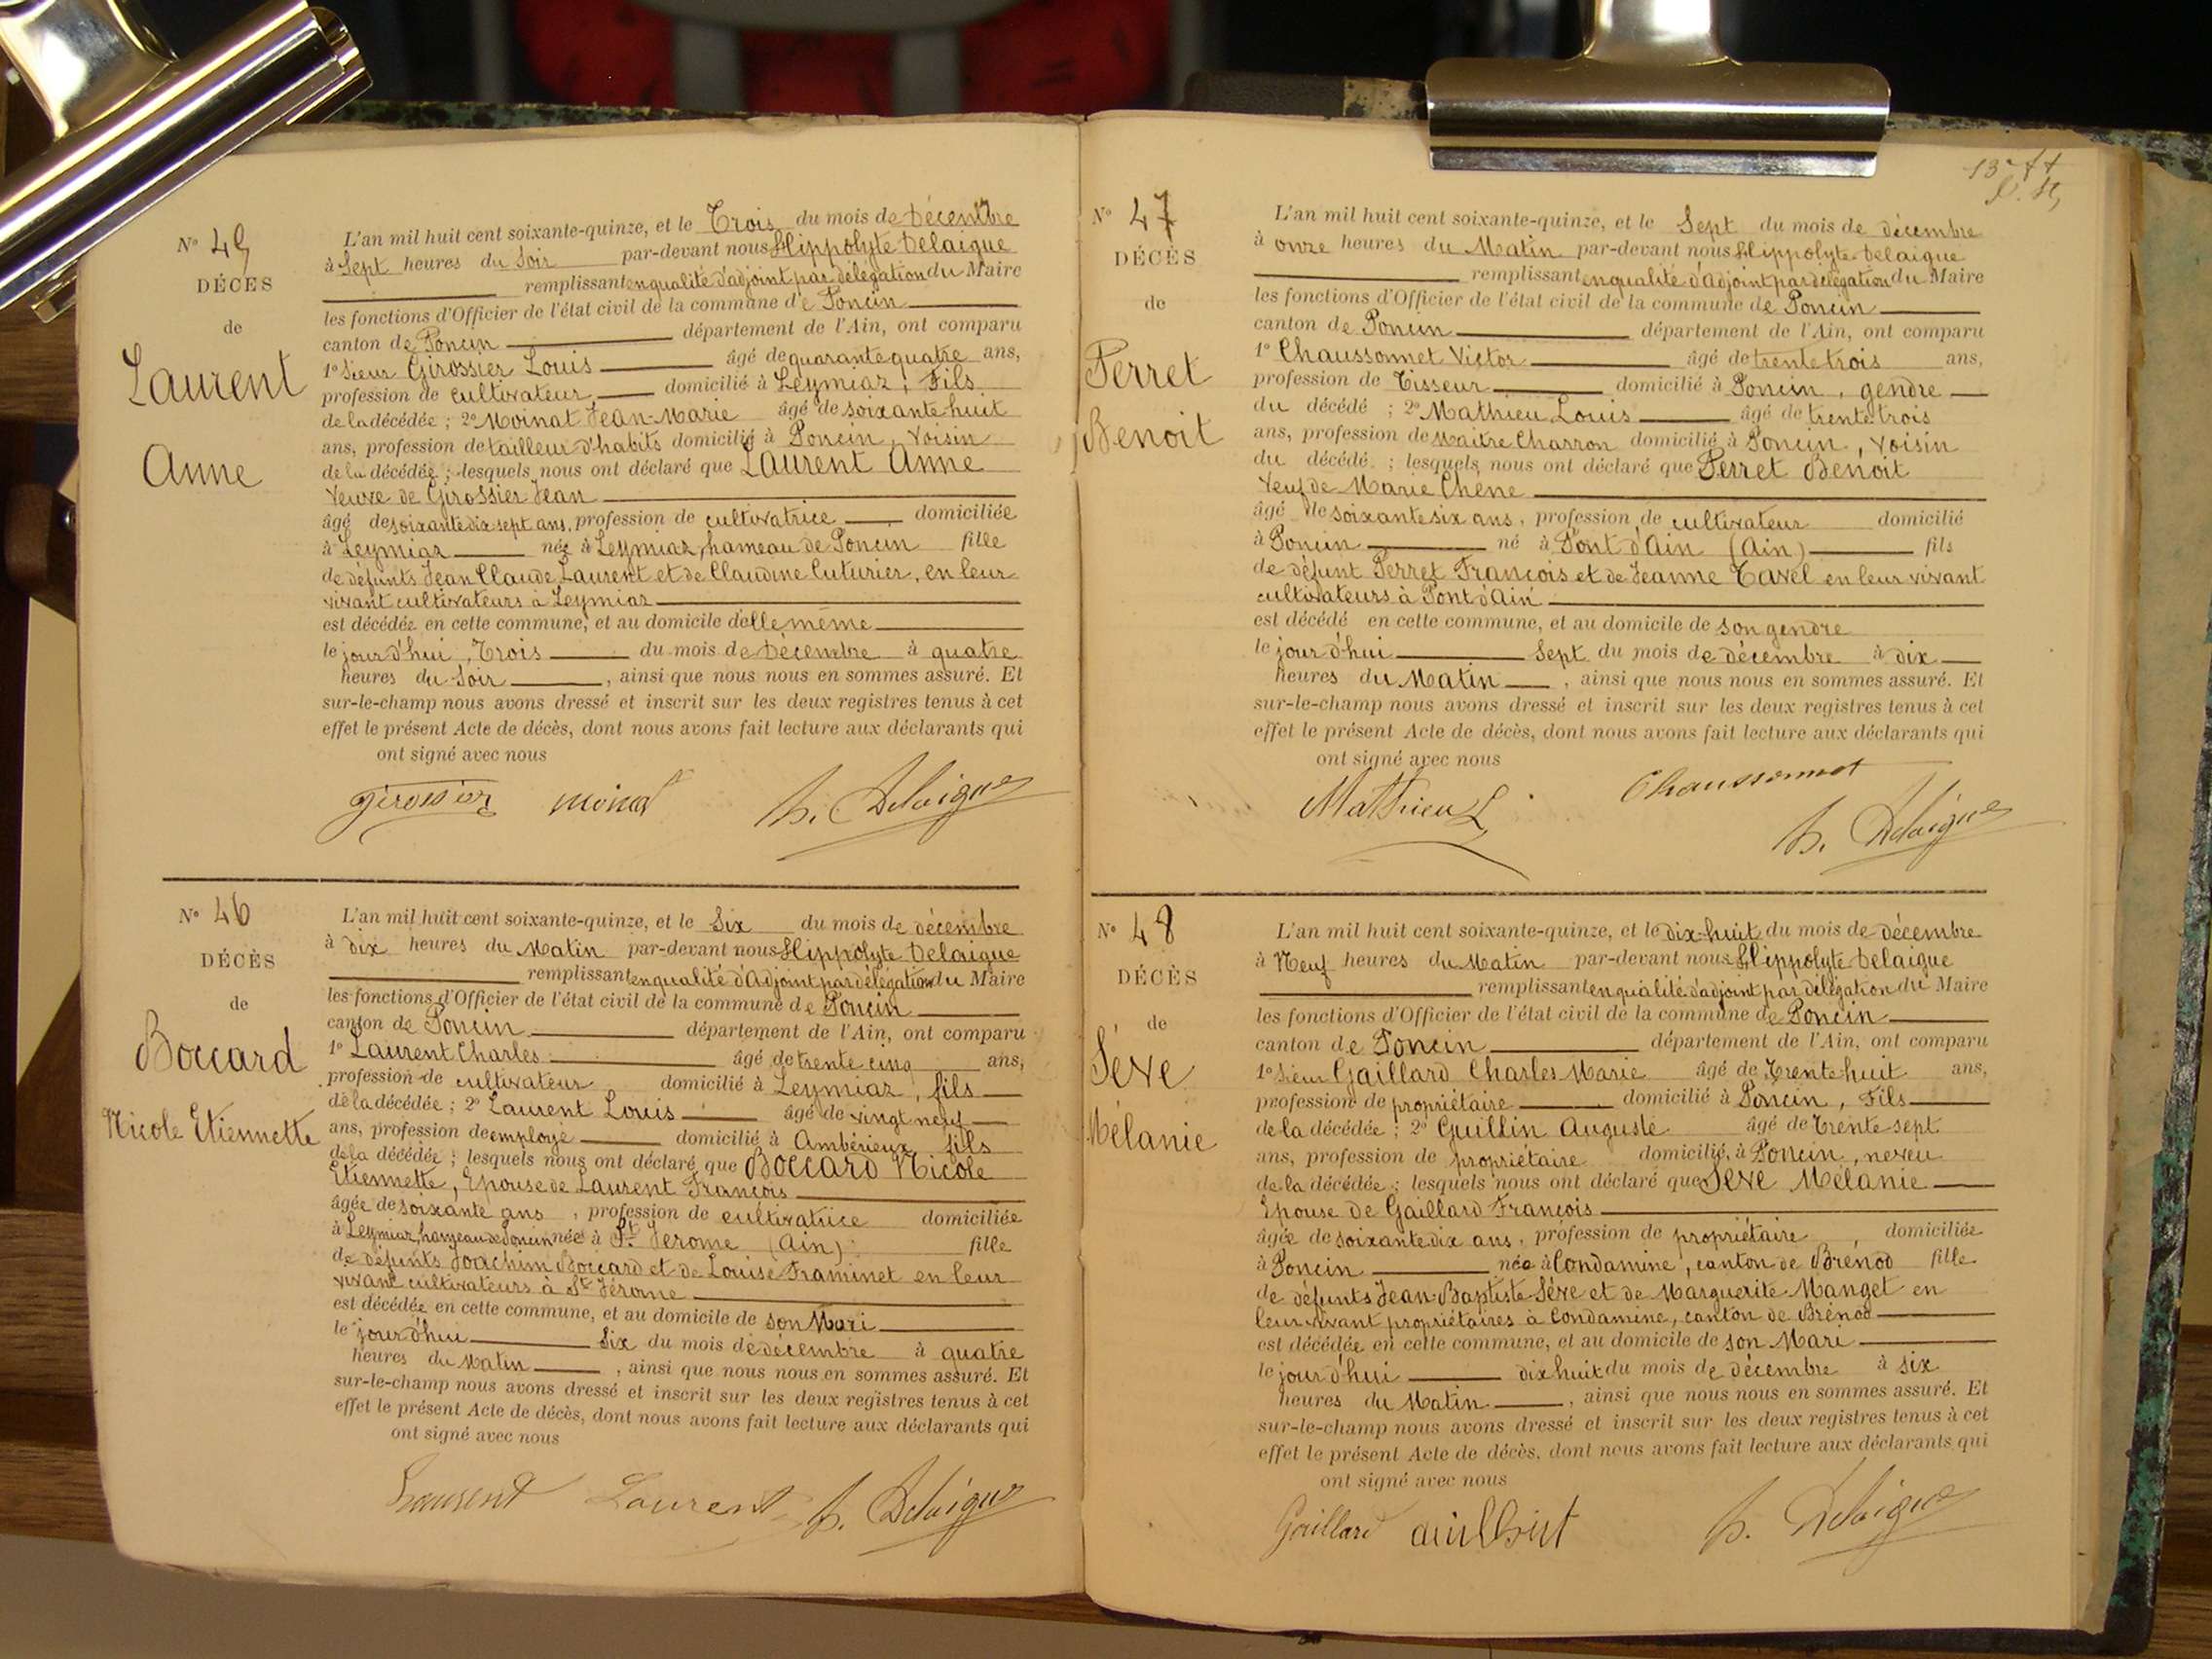 N° 45
DÉCÈS
de
Laurent
Anne
L'an mil huit cent soixante-quinze, et le Trois du mois de Décembre
à Sept heures du Soir par-devant nous Hippolyte Delaigue
remplissant en qualité d'adjoint par délégation du Maire
les fonctions d'Officier de l'état civil de la commune de Poncin
canton de Poncin département de l'Ain, ont comparu
1° Sieur Girossier Louis âgé de quarante quatre ans,
profession de cultivateur, domicilié à Leymiaz, Fils
de la décédée ; 2° Moinat Jean-Marie âgé de soixante huit
ans, profession de tailleur d'habits domicilié à Poncin, Voisin
de la décédée ; lesquels nous ont déclaré que Laurent Anne
Veuve de Girossier Jean
âgé de soixante dix sept ans, profession de cultivatrice domiciliée
à Leymiaz née à Leymiaz, hameau de Poncin fille
de défunts Jean Claude Laurent et de Claudine Cuturier, en leur
vivant cultivateurs à Leymiaz
est décédée en cette commune, et au domicile d'elle même
le jour d'hui, Trois du mois de Décembre à quatre
heures du Soir, ainsi que nous nous en sommes assuré. Et
sur-le-champ nous avons dressé et inscrit sur les deux registres tenus à cet
effet le présent Acte de décès, dont nous avons fait lecture aux déclarants qui
ont signé avec nous
Girossier Moinat h. Delaigue
N° 46
DÉCÈS
de
Boccard
Nicole Etiennette
L'an mil huit cent soixante-quinze, et le Six du mois de décembre
à dix heures du Matin par-devant nous Hippolyte Delaigue
remplissant en qualité d'Adjoint par délégation du Maire
les fonctions d'Officier de l'état civil de la commune de Poncin
canton de Poncin département de l'Ain, ont comparu
1° Laurent Charles âgé de trente cinq ans,
profession de cultivateur domicilié à Leymiaz, fils
de la décédée ; 2° Laurent Louis âgé de vingt neuf
ans, profession de employé domicilié à Ambérieux fils
de la décédée ; lesquels nous ont déclaré que Boccard Nicole
Etiennette, Epouse de Laurent François
âgée de soixante ans, profession de cultivatrice domiciliée
à Leymiaz, hameau de Poncin née à St. Jerome (Ain) fille
de défunts Joachim Boccard et de Louise Framinet en leur
vivant cultivateurs à St Jérome
est décédée en cette commune, et au domicile de son Mari
le jour d'hui Six du mois de décembre à quatre
heures du Matin, ainsi que nous nous en sommes assuré. Et
sur-le-champ nous avons dressé et inscrit sur les deux registres tenus à cet
effet le présent Acte de décès, dont nous avons fait lecture aux déclarants qui
ont signé avec nous
Laurent Laurent h. Delaigue
N° 47
DÉCÈS
de
Perret
Benoit
L'an mil huit cent soixante-quinze, et le Sept du mois de décembre
à onze heures du Matin par-devant nous Hippolyte Delaigue
remplissant en qualité d'Adjoint par délégation du Maire
les fonctions d'Officier de l'état civil de la commune de Poncin
canton de Poncin département de l'Ain, ont comparu
1° Chaussonnet Victor âgé de trente trois ans,
profession de Tisseur domicilié à Poncin, gendre
du décédé ; 2° Mathieu Louis âgé de trente trois
ans, profession de Maitre Charron domicilié à Poncin, Voisin
du décédé ; lesquels nous ont déclaré que Perret Benoit
Veuf de Marie Chêne
âgé de soixante six ans, profession de cultivateur domicilié
à Poncin né à Pont d'Ain (Ain) fils
de défunt Perret François et de Jeanne Tavel en leur vivant
cultivateurs à Pont d'Ain
est décédé en cette commune, et au domicile de son gendre
le jour d'hui Sept du mois de décembre à dix
heures du Matin, ainsi que nous nous en sommes assuré. Et
sur-le-champ nous avons dressé et inscrit sur les deux registres tenus à cet
effet le présent Acte de décès, dont nous avons fait lecture aux déclarants qui
ont signé avec nous
Mathieu L Chaussonnet
h. Delaigue
N° 48
DÉCÈS
de
Sève
Mélanie
L'an mil huit cent soixante-quinze, et le dix-huit du mois de décembre
à Neuf heures du Matin par-devant nous Hippolyte Delaigue
remplissant en qualité d'adjoint par délégation du Maire
les fonctions d'Officier de l'état civil de la commune de Poncin
canton de Poncin département de l'Ain, ont comparu
1° Sieur Gaillard Charles Marie âgé de Trente huit ans,
profession de propriétaire domicilié à Poncin, Fils
de la décédée ; 2° Guillin Auguste âgé de Trente sept
ans, profession de propriétaire domicilié à Poncin, neveu
de la décédée ; lesquels nous ont déclaré que Sève Mélanie
Epouse de Gaillard François
âgée de soixante dix ans, profession de propriétaire, domiciliée
à Poncin née à Condamine, canton de Brénod fille
de défunts Jean-Baptiste Sève et de Marguerite Manget en
leur vivant propriétaires à Condamine, canton de Brénod
est décédée en cette commune, et au domicile de son Mari
le jour d'hui dix huit du mois de décembre à six
heures du Matin, ainsi que nous nous en sommes assuré. Et
sur-le-champ nous avons dressé et inscrit sur les deux registres tenus à cet
effet le présent Acte de décès, dont nous avons fait lecture aux déclarants qui
ont signé avec nous
Gaillard h. Delaigue